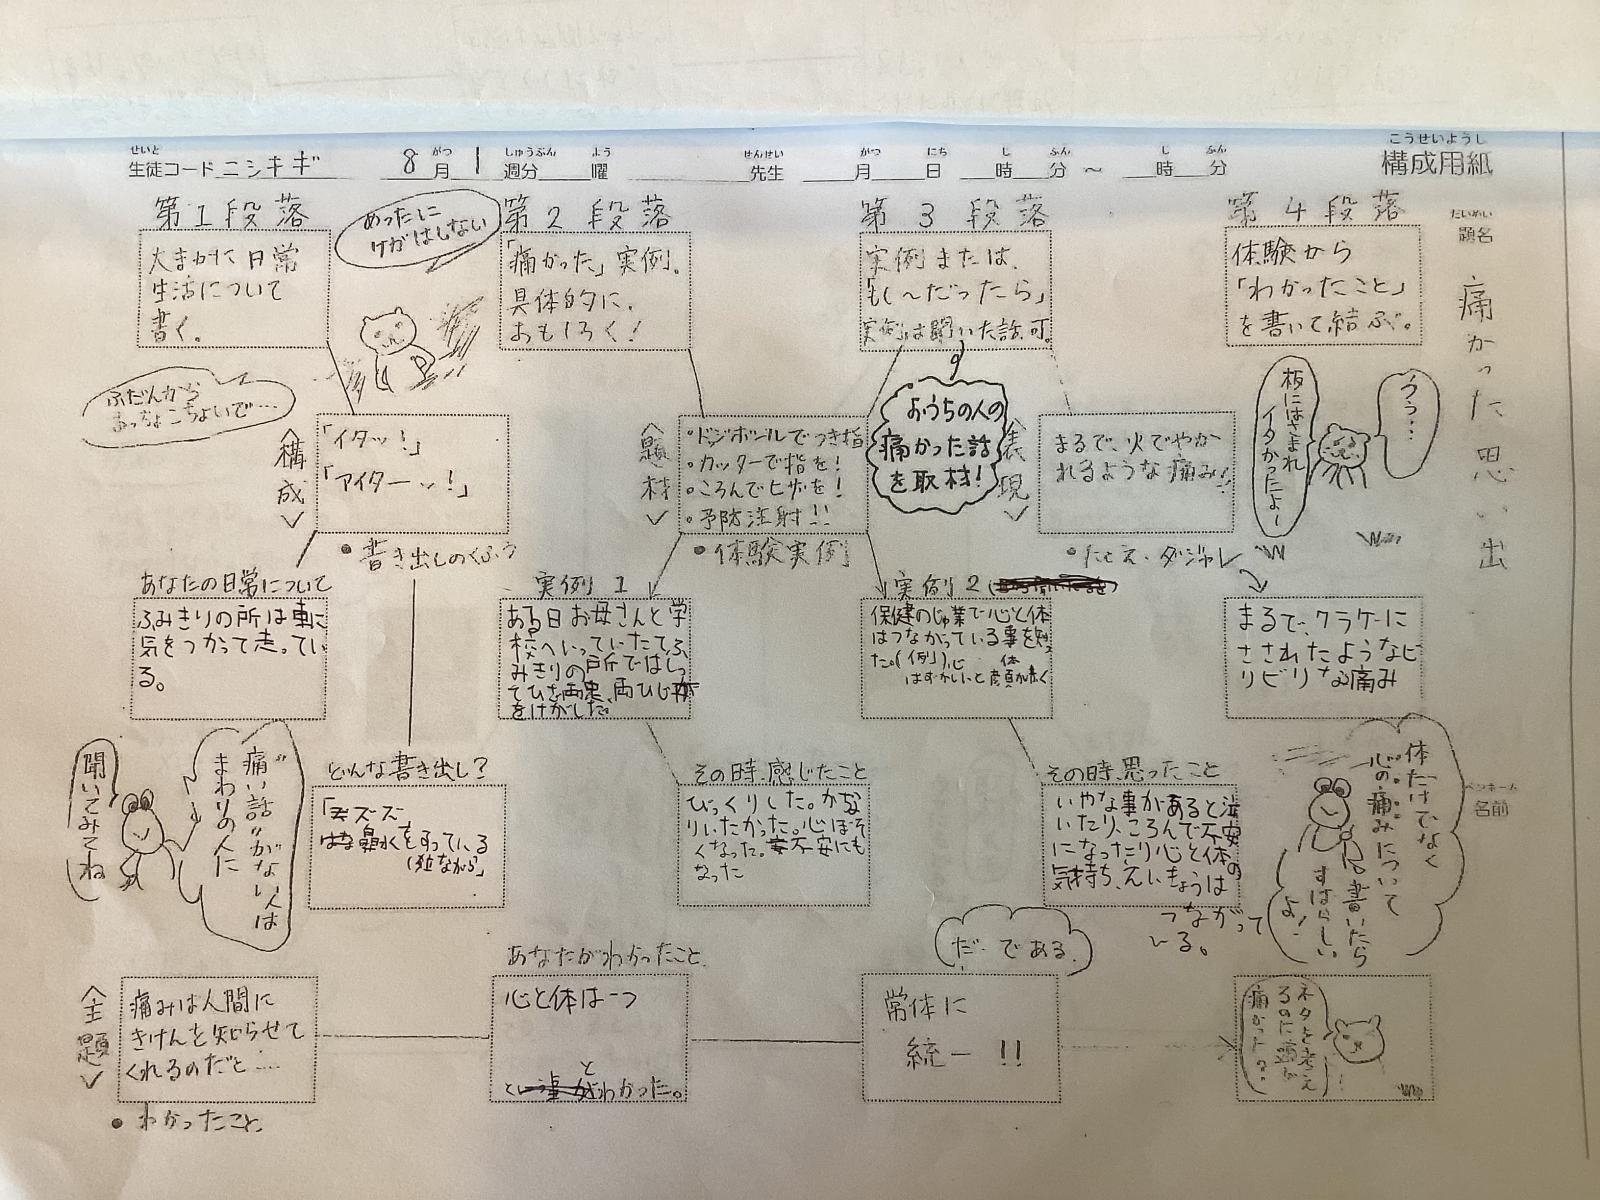 せいと がつ しゅうぶん よう せんせい がつ にち じ ふん じ ふん こうせいようし
生徒コード ニシキギ 8月 1 週分 曜 先生 月 日 時 分 〜 時 分 構成用紙
だいめい
題名
痛かった思い出
ペンネーム
名前
第1段落
大まかに日常
生活について
書く。
めったに
けがはしない
第2段落
「痛かった」実例。
具体的に、
おもしろく!
第3段落
実例または、
「もし〜だったら」
実例は聞いた話可。
第4段落
体験から
「わかったこと」
を書いて結ぶ。
ふだんから
おっちょこちょいで…
〈構成〉
「イタッ!」
「アイターッ!」
・書き出しのくふう
〈題材〉
・ドッジボールでつき指
・カッターで指を!
・ころんでヒザを!
・予防注射!!
・体験実例
おうちの人の
痛かった話
を取材!
〈表現〉
まるで、火でやか
れるような痛み!!
・たとえ・ダジャレ
板にはさまれ
イタかったよ〜
ううっ…
あなたの日常について
ふみきりの所は車に
気をつかって走ってい
る。
実例1
ある日お母さんと学
校へいっていたてふ
みきりの所ではしっ
てひざ両
両ひじ
をけがした。
実例2
保健のじゅ業で心と体
はつながっている事を知っ
た。(例)心 体
はずかしいと顔が赤く
まるで、クラゲーに
さされたようなビ
リビリな痛み
聞いてみてね
"痛い話"がない人は
まわりの人に
どんな書き出し?
「ズズズ
鼻水をすっている
その時、感じたこと
びっくりした。かな
りいたかった。心ぼそ
くなった。不安にも
なった
その時、思ったこと
いやな事があると泣
いたり、ころんで不安
になったり心と体の
気持ち、えいきょうは
つながって
いる。
体だけでなく
心の痛みについて
書いたら
すばらしい
よ!
〈主題〉
痛みは人間に
きけんを知らせて
くれるのだと……
・わかったこと
あなたがわかったこと
心と体は一つ
と
わかった。
だ・である
常体に
統一!!
ネタを考え
るのに頭が
痛かったな。